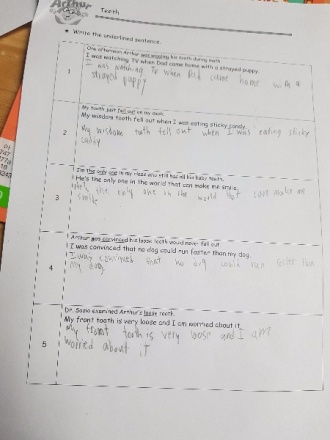 Arthur
Teeth
★ Write the underlined sentence.
1
One afternoon Arthur was wiggling his tooth during math.
I was watching TV when Dad came home with a strayed puppy.
I was watching TV when Dad came home with a
strayed puppy
2
My tooth just fell out on my desk.
My wisdom tooth fell out when I was eating sticky candy.
My wisdom tooth fell out when I was eating sticky
candy
3
I'm the only one in my class who still has all his baby teeth.
He's the only one in the world that can make me smile.
He's the only one in the world that can make me
smile
4
Arthur was convinced his loose tooth would never fall out.
I was convinced that no dog could run faster than my dog.
I was convinced that no dog could run faster than
my dog
5
Dr. Sozio examined Arthur's loose tooth.
My front tooth is very loose and I am worried about it.
My front tooth is very loose and I am
worried about it